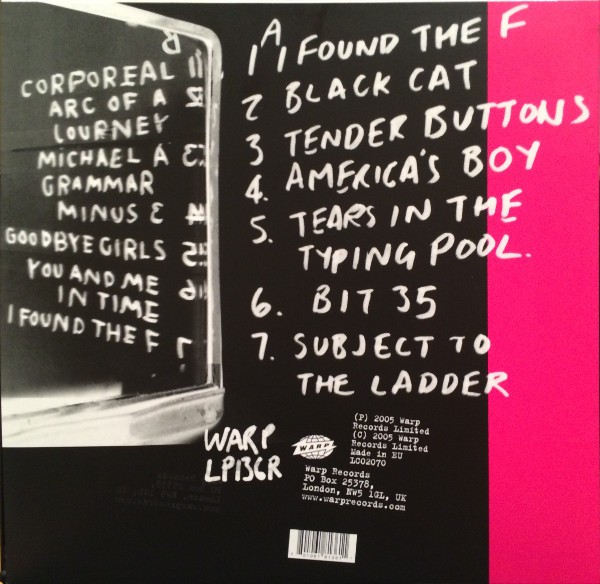 CORPOREAL
ARC OF A
LOURNEY
MICHAEL A
GRAMMAR
MINUS 3
GOODBYE GIRLS
YOU AND ME
IN TIME
I FOUND THE F
A
1 I FOUND THE F
2 BLACK CAT
3 TENDER BUTTONS
4. AMERICA'S BOY
5. TEARS IN THE
TYPING POOL.
6. BIT 35
7. SUBJECT TO
THE LADDER
WARP
LP136R
WARP
(P) 2005 Warp
Records Limited
(C) 2005 Warp
Records Limited
Made in EU
LC02070
Warp Records
PO Box 25378,
London, NW5 1GL, UK
www.warprecords.com